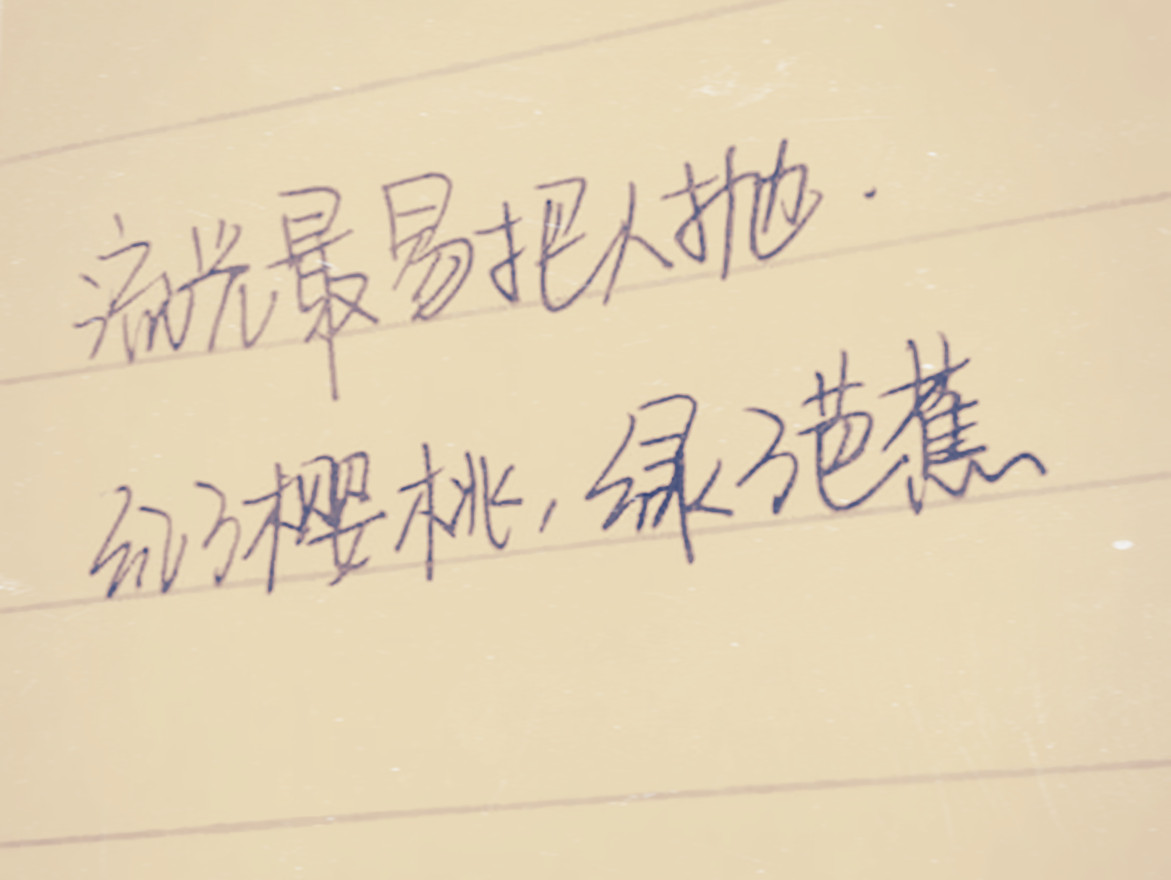 流光最易把人抛.
红了樱桃,绿了芭蕉